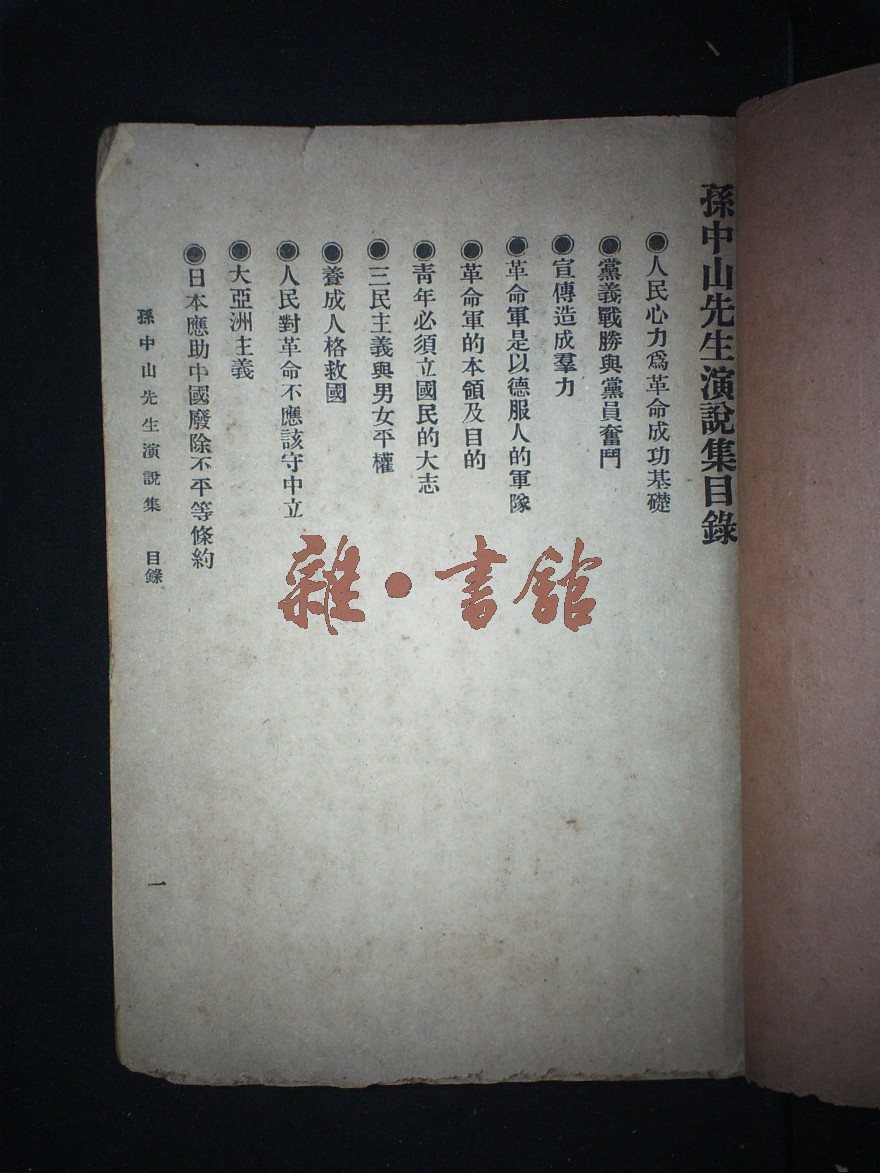 孫中山先生演說集目錄
◉人民心力爲革命成功基礎
◉黨義戰勝與黨員奮鬥
◉宣傳造成羣力
◉革命軍是以德服人的軍隊
◉革命軍的本領及目的
◉靑年必須立國民的大志
◉三民主義與男女平權
◉養成人格救國
◉人民對革命不應該守中立
◉大亞洲主義
◉日本應助中國廢除不平等條約
孫中山先生演說集 目錄
一
雜·書館